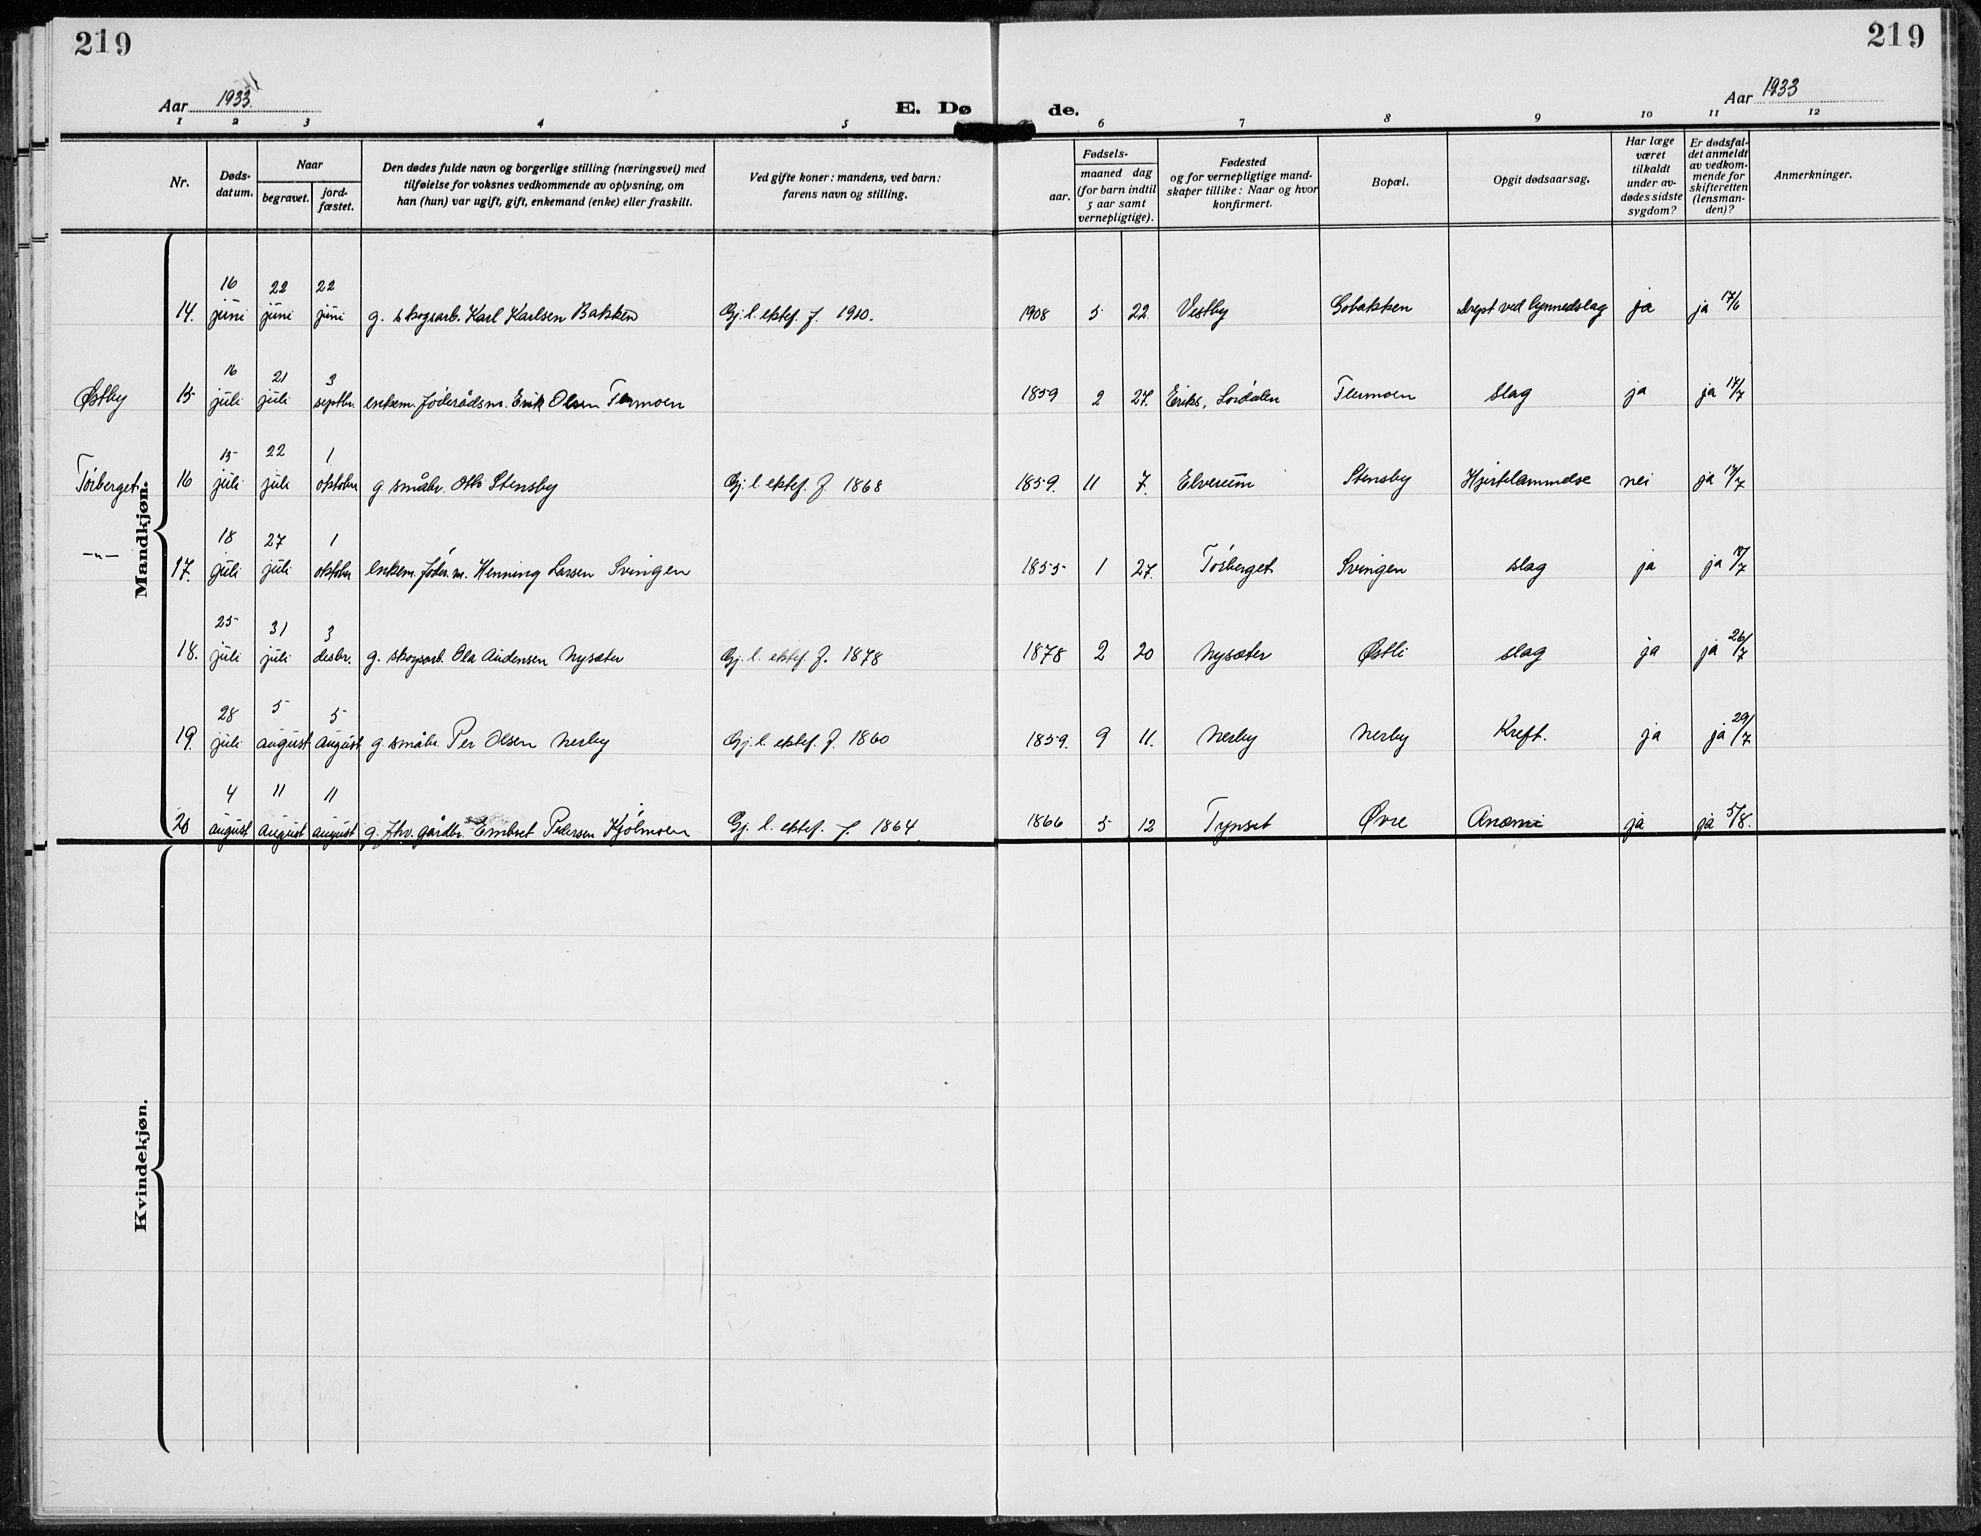 219
219
Aar 1933.
E. Dø de.
Aar 1933
1 2 3 4 5 6 7 8 9 10 11 12
Nr.
Døds-
datum.
Naar
begravet.
jord-
fæstet.
Den dødes fulde navn og borgerlige stilling (næringsvei) med
tilføielse for voksnes vedkommende av oplysning, om
han (hun) var ugift, gift, enkemand (enke) eller fraskilt.
Ved gifte koner: mandens, ved barn:
farens navn og stilling.
Fødsels-
aar.
maaned dag
(for barn indtil
5 aar samt
vernepligtige).
Fødested
og for vernepligtige mand-
skaper tillike: Naar og hvor
konfirmert.
Bopæl.
Opgit dødsaarsag.
Har læge
været
tilkaldt
under av-
dødes sidste
sygdom?
Er dødsfal-
det anmeldt
av vedkom-
mende for
skifteretten
(lensman-
den)?
Anmerkninger.
Mandkjøn.
14. 16 juni 22 juni 22 juni g. skogsarb. Karl Karlsen Bakken Gj. l. ektef. f. 1910. 1908 5 22. Vestby Gobakken Drept ved lynnedslag ja ja 17/6
Østby 15 16 juli 21 juli 3 septbr. enkem. føderådsm. Erik Olsen Flermoen 1859 2 27. Eriks, Sördalen Flermoen Slag ja ja 17/7
Törberget. 16 15 juli 22 juli 1 oktober g småbr. Otto Stensby Gj. l. ektef. f. 1868 1859. 11 7. Elverum Stensby Hjertelammelse nei ja 17/7
-"- 17. 18 juli 27 juli 1 oktober enkem. föder.m. Henning Larsen Svingen 1855 1 27. Törberget Svingen slag ja ja /7
18. 25 juli 31 juli 3 desbr. g. skogsarb. Ola Audensen Nysæter Gj. l. ektef. f. 1878 1878 2 20 Nysæter Østli slag ja ja 26/7
19. 28 juli 5 august 5 august g småbr. Per Olsen Nerby Gj. l. ektef. f. 1860 1859. 9 11. Nerby Nerby Kreft. ja ja 29/7
20 4 august 11 august 11 august g. fhv. gårdbr. Embret Pedersen Kjölmoen Gj. l. ektef. f. 1864. 1866 5 12 Tynset Øvre Anæmi ja ja 5/8.
Kvindekjøn.